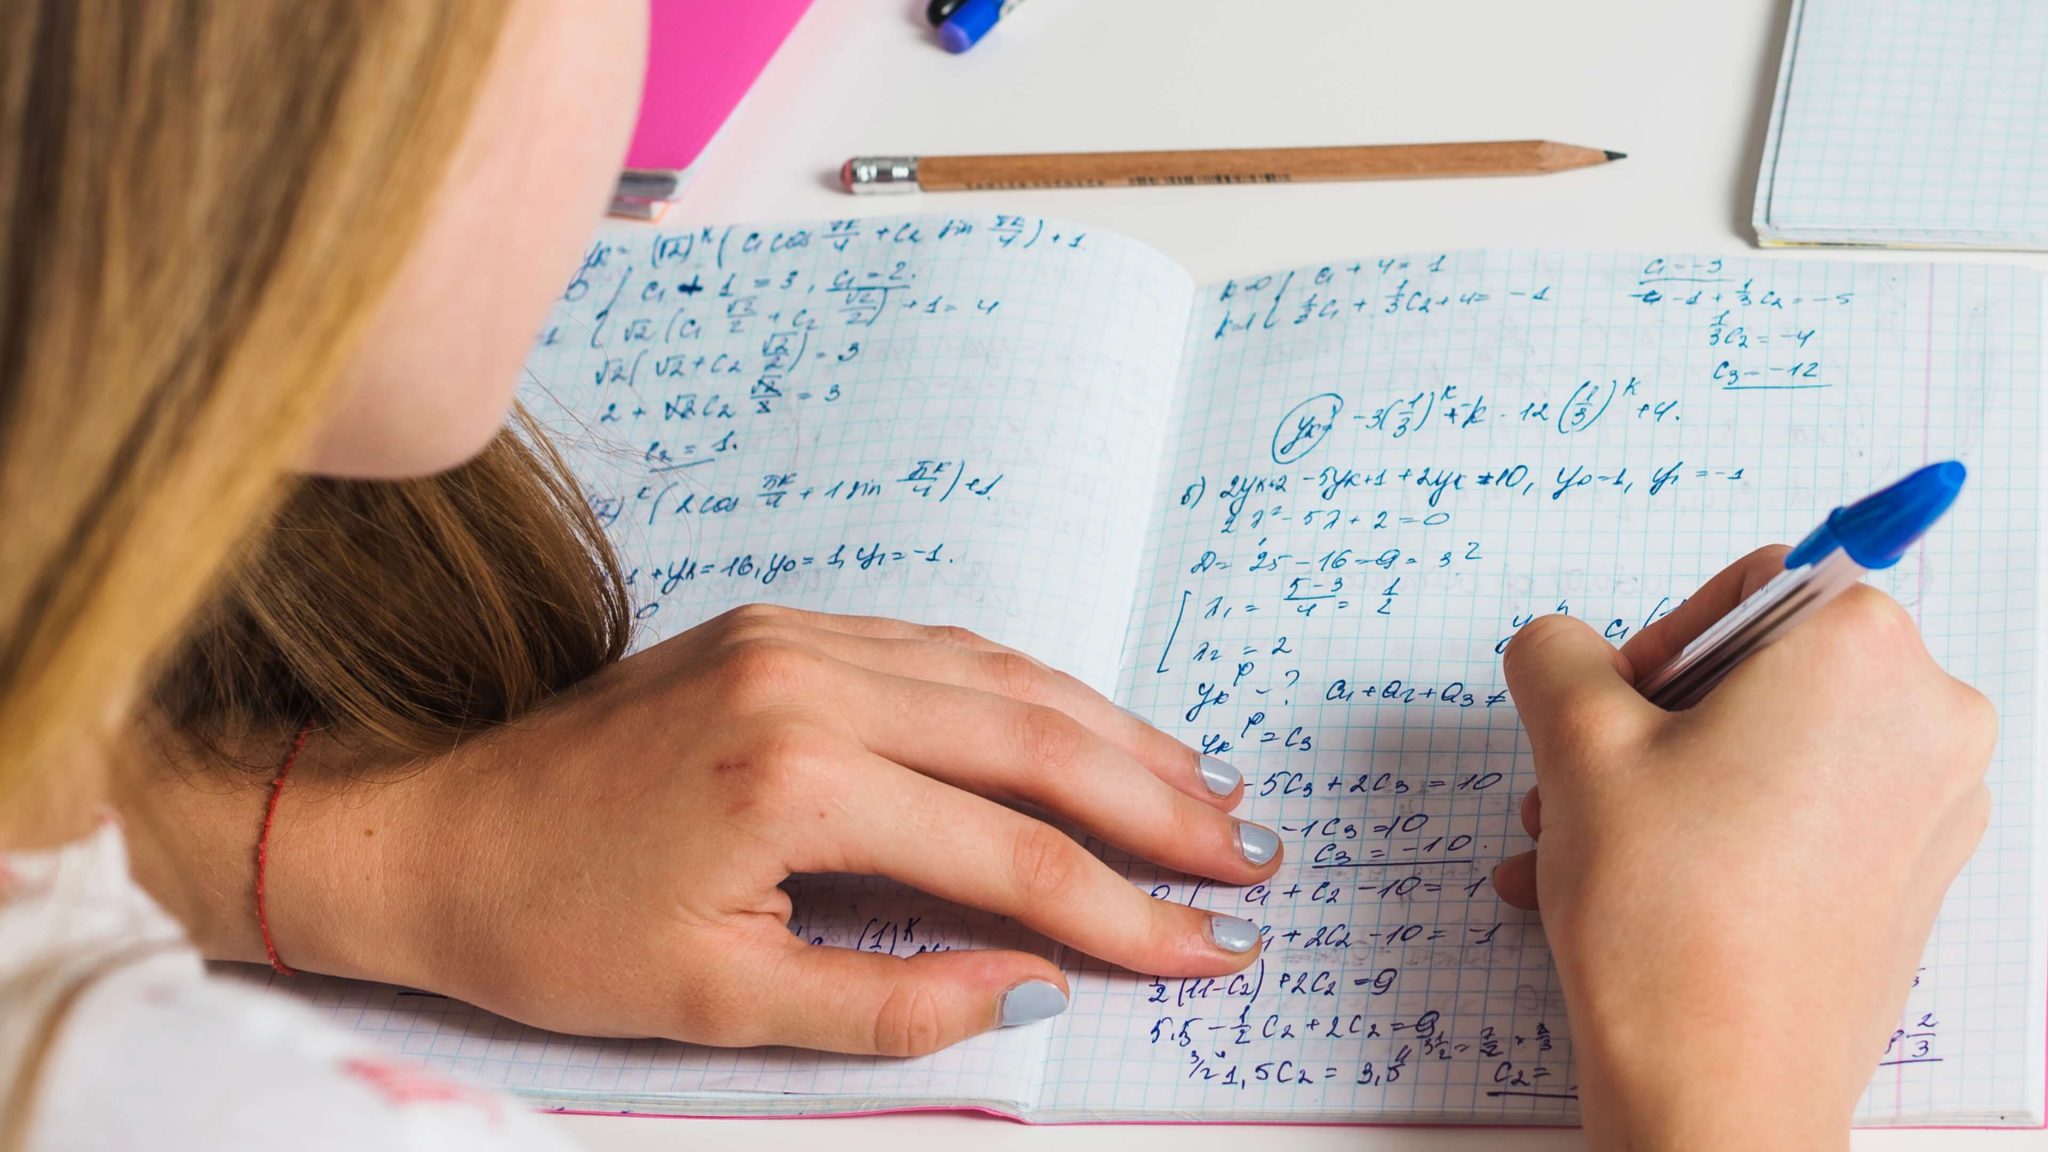 yₖ = (√2)ᴷ (c₁ cos πk/4 + c₂ sin πk/4) + 1.
c₁ + 1 = 3, c₁ = 2.
√2 (c₁ √2/2 + c₂ √2/2) + 1 = 4
√2 (√2 + c₂ √2/2) = 3
2 + √2 c₂ √2/2 = 3
c₂ = 1.
(√2)ᴷ (2 cos πk/4 + 1 sin πk/4) + 1.
1 + yₖ = 16, y₀ = 1, y₁ = -1.
0
(1)ᴷ
k=0 { c₁ + 4 = 1
k=1 { 1/3 c₁ + 1/3 c₂ + 4 = -1
c₁ = -3
-1 + 1/3 c₂ = -5
1/3 c₂ = -4
c₃ = -12
yₖ = -3 (1/3)ᴷ + k · 12 (1/3)ᴷ + 4.
б) 2yₖ₊₂ - 5yₖ₊₁ + 2yₖ = 10, y₀ = 1, y₁ = -1
2λ² - 5λ + 2 = 0
D = 25 - 16 = 9 = 3²
λ₁ = 5-3/4 = 1/2
λ₂ = 2
c₁ (1
yₖᵖ - ? a₁ + a₂ + a₃ ≠
yₖᵖ = c₃
-5c₃ + 2c₃ = 10
-1c₃ = 10
c₃ = -10.
c₁ + c₂ - 10 = 1
c₁ + 2c₂ - 10 = -1
1/2 (11 - c₂) + 2c₂ = 9
5,5 - 1/2 c₂ + 2c₂ = 9
1,5c₂ = 3,5
c₂ =
2/3